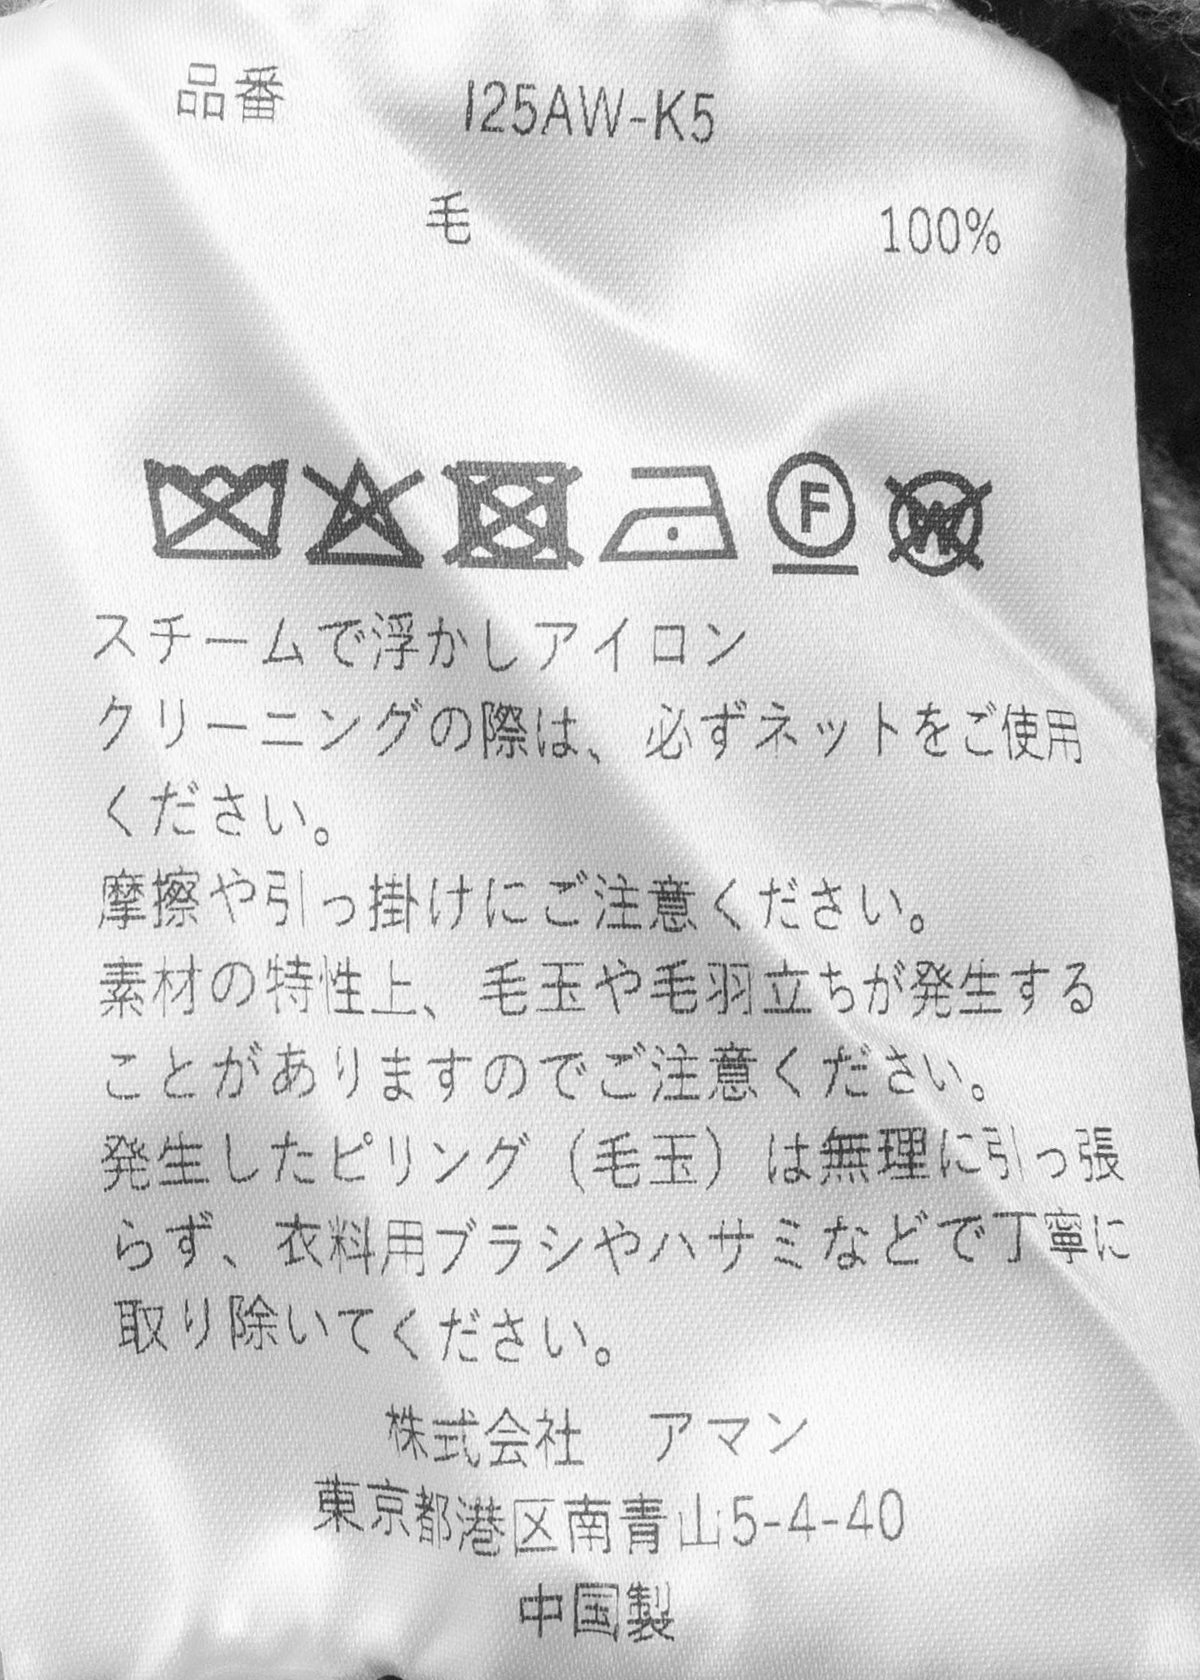 品番 I25AW-K5
毛 100%
F W
スチームで浮かしアイロン
クリーニングの際は、必ずネットをご使用
ください。
摩擦や引っ掛けにご注意ください。
素材の特性上、毛玉や毛羽立ちが発生する
ことがありますのでご注意ください。
発生したピリング（毛玉）は無理に引っ張
らず、衣料用ブラシやハサミなどで丁寧に
取り除いてください。
株式会社　アマン
東京都港区南青山5-4-40
中国製